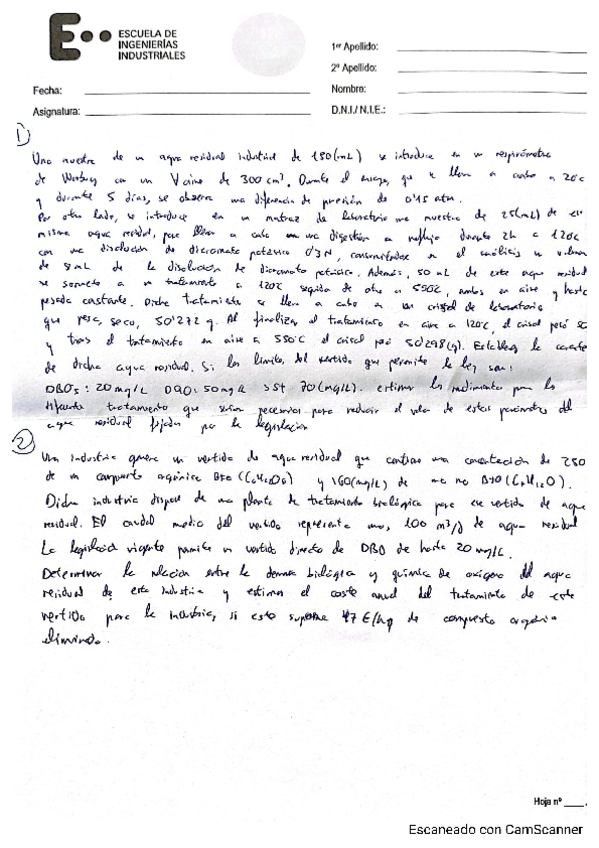 ESCUELA DE
INGENIERÍAS
INDUSTRIALES
1er Apellido:
2º Apellido:
Fecha:
Nombre:
Asignatura:
D.N.I./ N.I.E.:
1)
Una muestra de un agua residual industrial de 180(mL) se introduce en un respirómetro
de Warburg con un V aire de 300 cm³. Durante el ensayo, que se lleva a cabo a 20ºC
y durante 5 días, se observa una diferencia de presión de 0'15 atm.
Por otro lado, se introduce en un matraz de laboratorio una muestra de 25(mL) de
misma agua residual, para llevar a cabo una digestión a reflujo durante 2h a 120ºC
con una disolución de dicromato potásico 0'3 N, consumiéndose en el análisis un volumen
de 8 mL de la disolución de dicromato potásico. Además, 50 mL de este agua residual
se somete a un tratamiento a 120ºC seguida de otro a 550ºC, ambos en aire y hasta
pesada constante. Dicho tratamiento se lleva a cabo en un crisol de laboratorio
que pesa, seco, 50'272 g. Al finalizar el tratamiento en aire a 120ºC, el crisol pesó 50
y tras el tratamiento en aire a 550ºC el crisol pesó 50'298(g). Establezca la
de dicha agua residual. Si los límites del vertido que permite la ley son:
DBO5: 20 mg/L DQO: 50 mg/L SST 70(mg/L). estimar los rendimientos para los
diferentes tratamientos que serían necesarios para reducir el valor de estos parámetros del
agua residual fijados por la legislación
2)
Una industria genera un vertido de agua residual que contiene una concentración de 250
de un compuesto orgánico BIO (C6H12O6) y 160(mg/L) de uno no BIO
Dicha industria dispone de una planta de tratamiento biológico para ese vertido de agua
residual. El caudal medio del vertido representa unos, 100 m³/d de agua residual
La legislación vigente permite un vertido directo de DBO de hasta 20 mg/L.
Determinar la relación entre la demanda biológica y química de oxígeno del agua
residual de esta industria y estimar el coste anual del tratamiento de este
vertido para la industria, si esto supone 47 €/kg de compuesto orgánico
eliminado.
Hoja nº
Escaneado con CamScanner